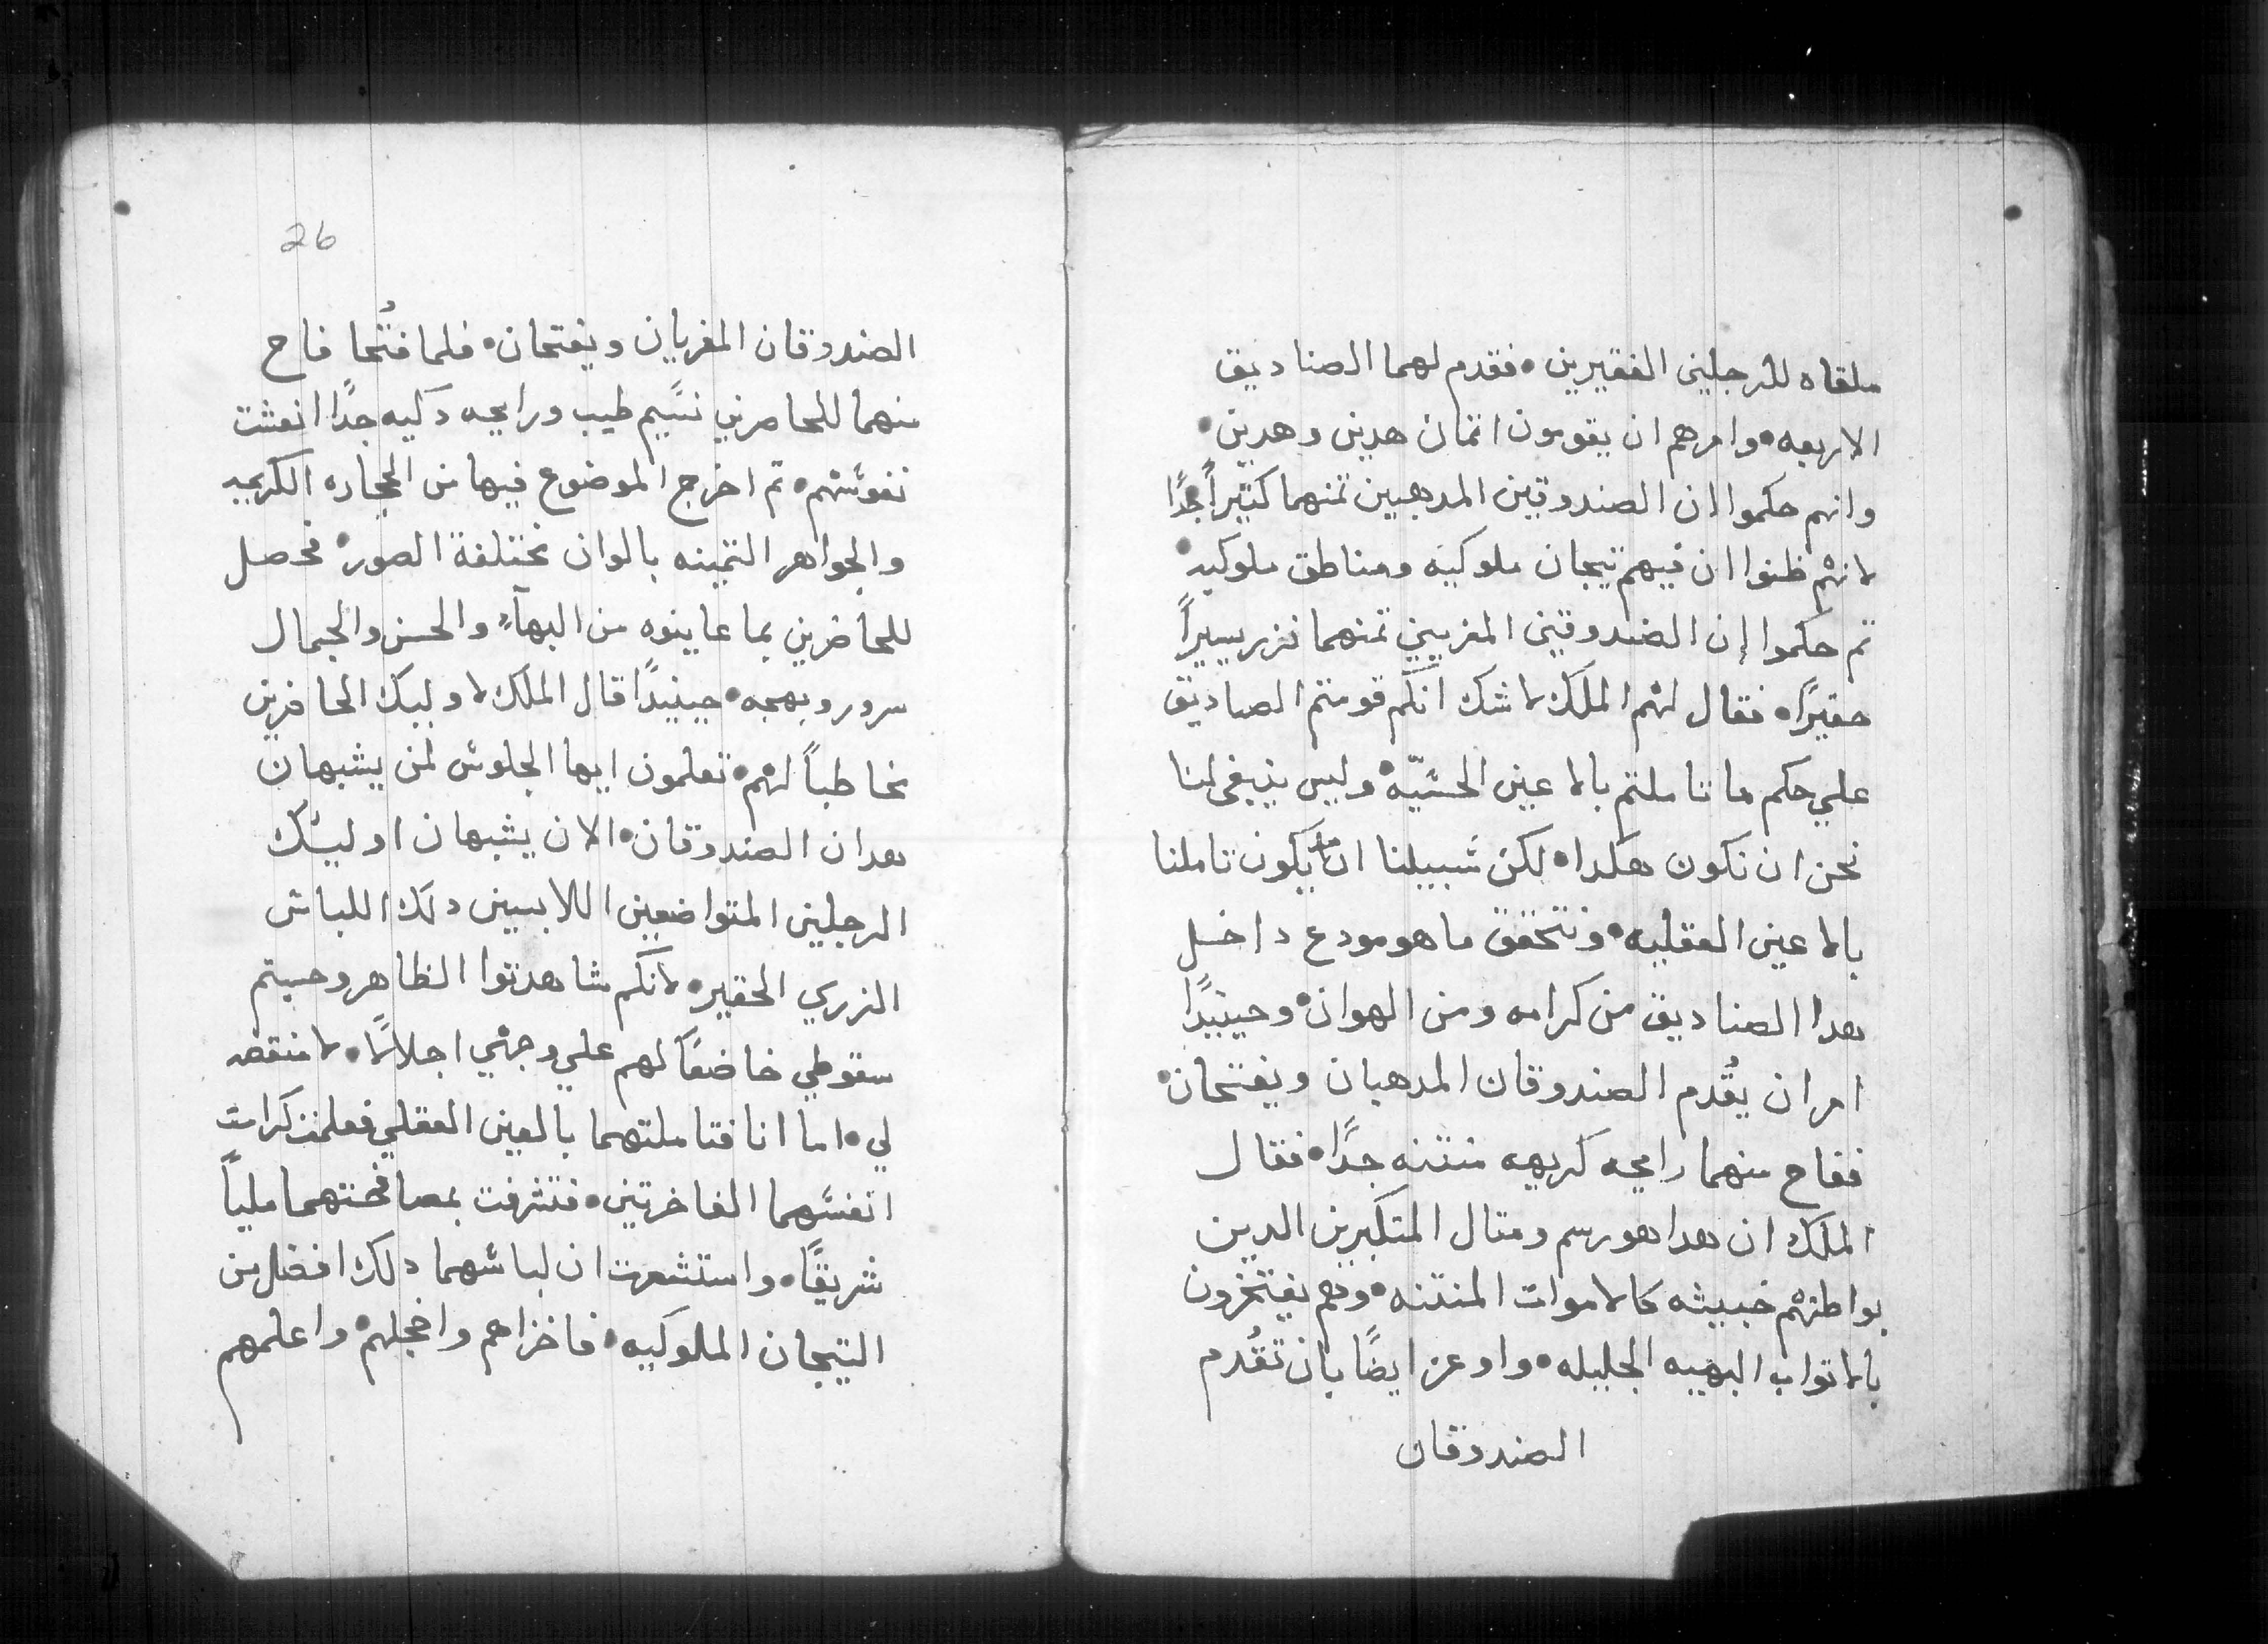 ملقاه للرجلين الفقيرين٠ فقدم لهما الصناديق
الاربعه٠ وامرهم ان يقومون اتمان هدين وهدين٠
وانهم حكموا ان الصندوقين المدهبين تمنهما كثيراً جدًا
لانهم ظنوا ان فيهم تيجان ملوكيه ومناطق ملوكيه٠
تم حكموا إن الصندوقين المغربين تمنهما نزر يسيراً
حقيرًا٠ فقال لهم الملك لا شك انكم قومتم الصاديق
علي حكم ما تاملتم بالاعين الحسّيّه٠ وليس ينبغي لنا
نحن ان نكون هكدا٠ لكن سبيلنا ان يكون تاملنا
بالاعين العقليه٠ ونتحقق ما هو مودع داخل
هدا الصناديق من كرامه ومن الهوان٠ وحينيدًا
امر ان يُقدم الصندوقان المدهبان ويفتحان٠
ففاح منهما رايحه كريهه منتنه جدًا٠ فقال
الملك ان هدا هو رسم ومتال المتكبرين الدين
بواطنهم خبيثه كالاموات المنتنه٠ وهم يفتخرون
بالاتواب البهيه الجليله٠ واوعز ايضًا بان تقُدم
الصندوقان
26
الصندوقان المغربان ويفتحان٠ فلما فتُحا فاح
منهما للحاضرين نسيم طيب ورايحه دكيه جدًا انعشت
نفوسهم٠ تم اخرج الموضوع فيها من الحجاره الكريمه
والجواهر التمينه بالوان مختلفة الصور٠ فحصل
للحاضرين بما عاينوه من البهآء والحسن والجمال
سرور وبهجه٠ حينيدًا قال الملك لاوليك الحاضرين
مخاطباً لهم٠ تعلمون ايها الجلوس لمن يشبهان
هدان الصندوقان٠ الان يشبهان اوليك
الرجلين المتواضعين اللابسين دلك اللباس
الزري الحقير٠ لانكم شاهدتوا الظاهر وحسبتم
سقوطي خاضعاً لهم علي وجهي اجلالاً٠ لا منقصه
لي٠ اما انا فتاملتهما بالعين العقلي فعلمت كرامت
انفسهما الفاخرتين٠ فتشرفت بمصافحتهما ملياً
شريفًا٠ واستشعرت ان لباسهما دلك افضل من
التيجان الملوكيه٠ فاخزاهم واخجلهم٠ واعلمهم